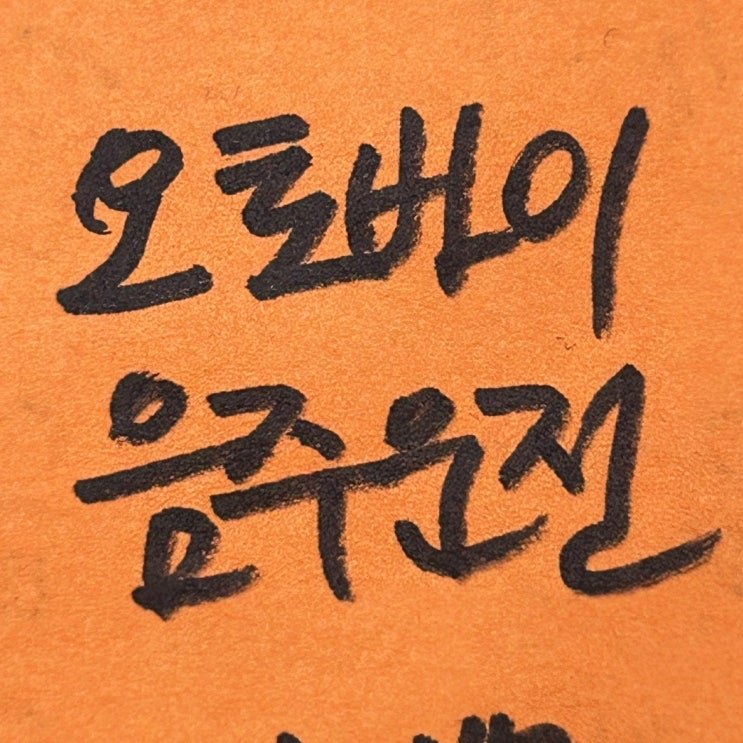 오토바이
음주운전